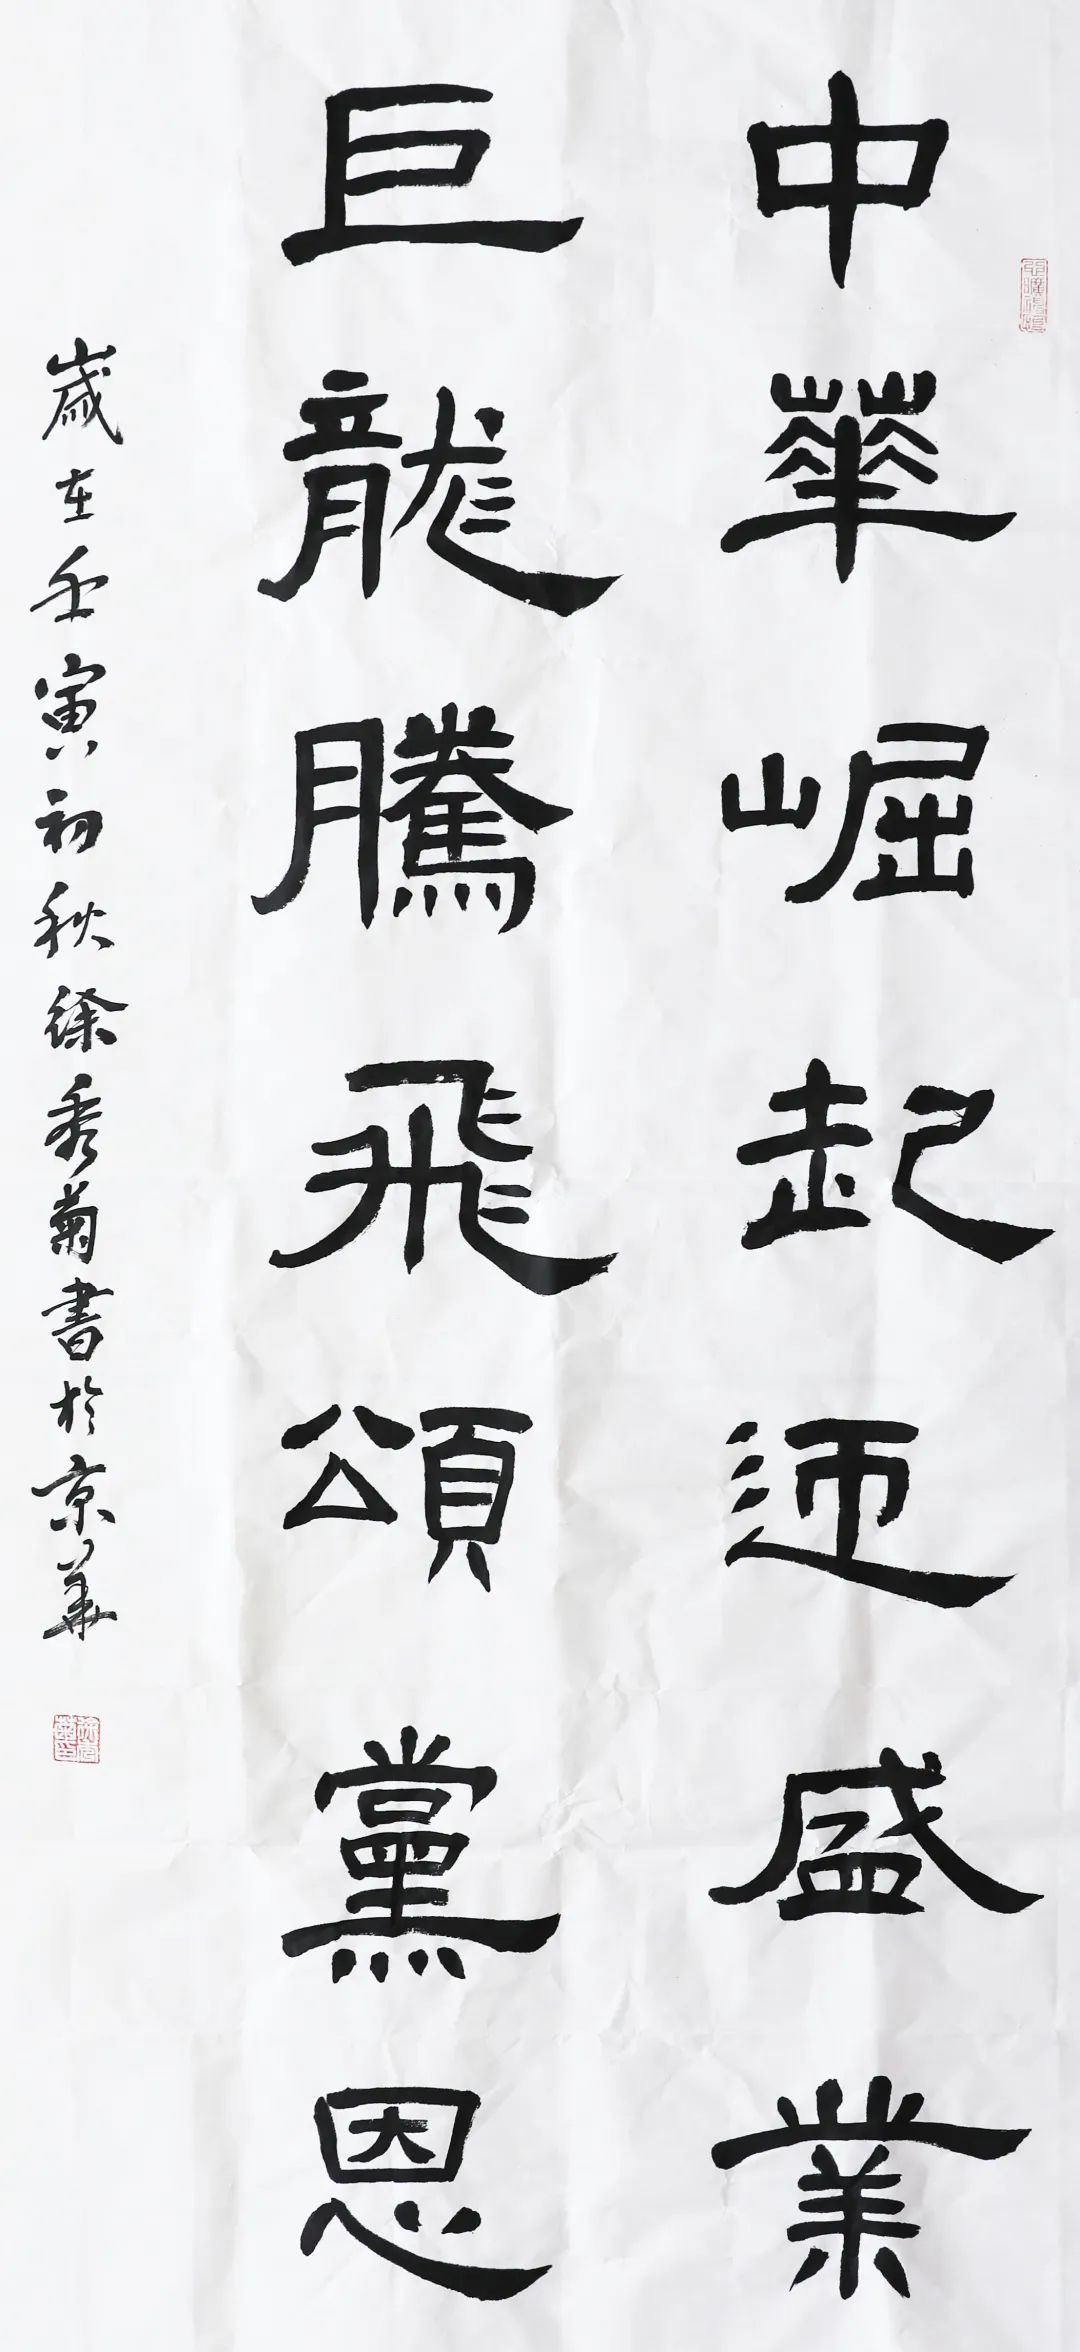 中華崛起迊盛業
巨龍騰飛頌黨恩
歲在壬寅初秋徐秀菊書於京華